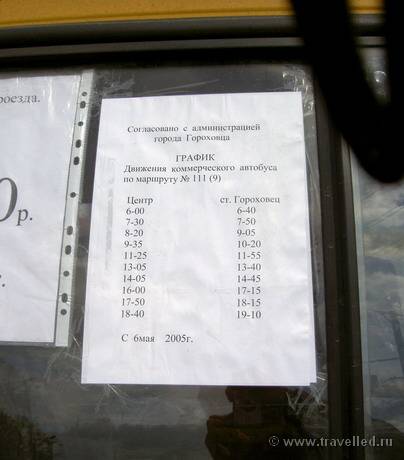 роезда.
0р.
Согласовано с администрацией
города Гороховца
ГРАФИК
Движения коммерческого автобуса
по маршруту № 111 (9)
Центр ст. Гороховец
6-00 6-40
7-30 7-50
8-20 9-05
9-35 10-20
11-25 11-55
13-05 13-40
14-05 14-45
16-00 17-15
17-50 18-15
18-40 19-10
С 6мая 2005г.
www.travelled.ru